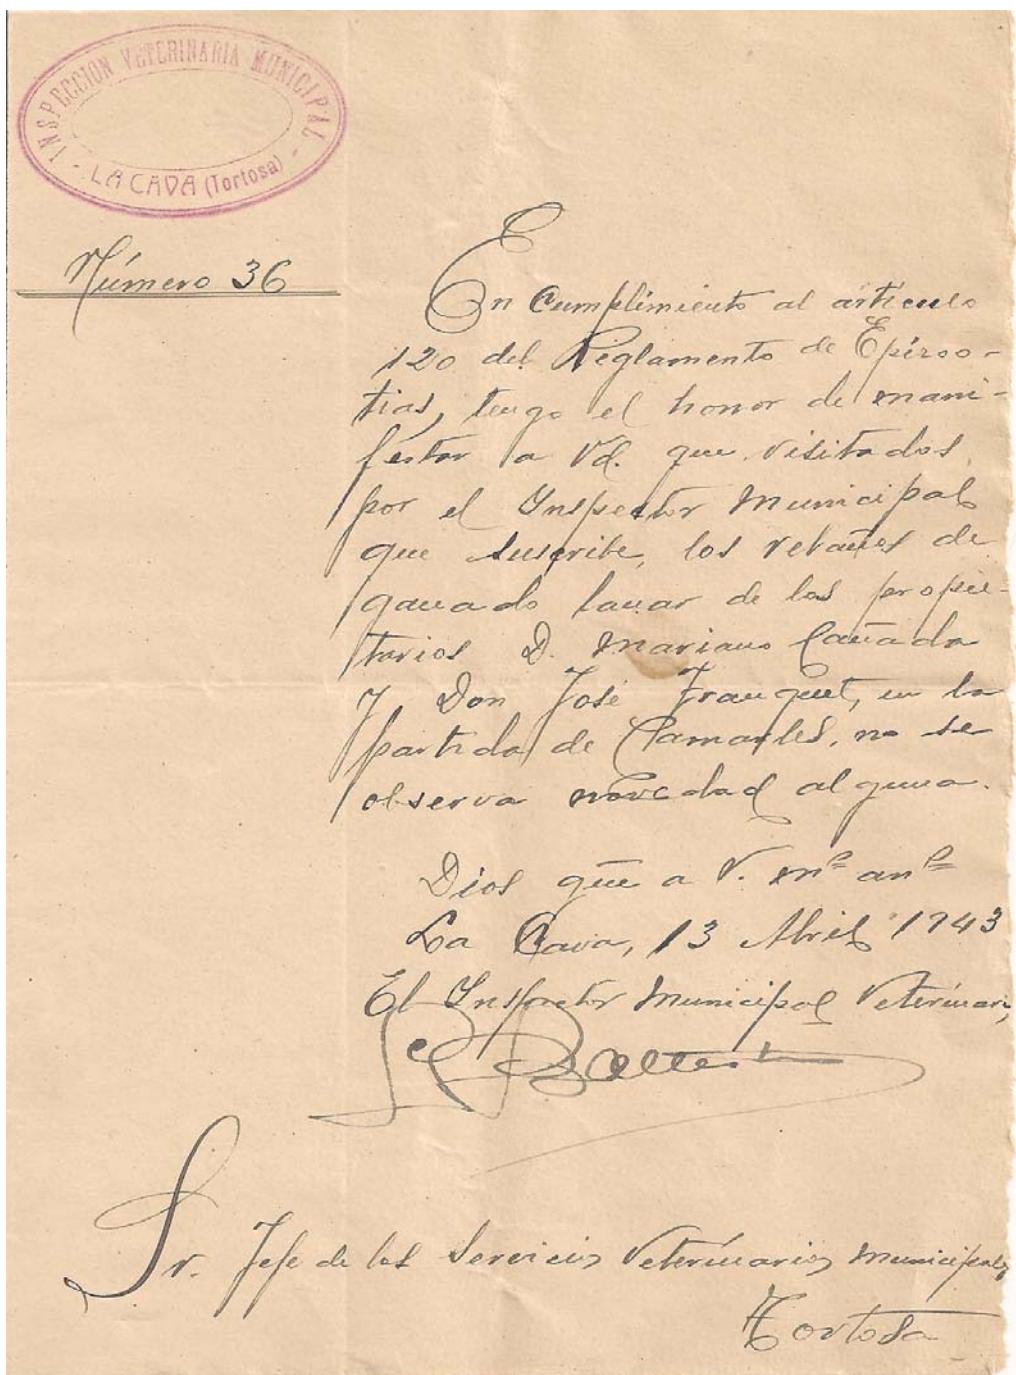 INSPECCION VETERINARIA MUNICIPAL
- LA CAVA (Tortosa) -
Número 36
En Cumplimiento al artículo
120 del Reglamento de Epizoo-
tias, tengo el honor de mani-
festar a Vd. que visitados
por el Inspector Municipal
que suscribe, los rebaños de
ganado lanar de los propie-
tarios D. Mariano Cañada
y Don José Franquet, en la
partida de Camarles, no se
observa novedad alguna.
Dios gūe a V. mˢ anˢ
La Cava, 13 Abril 1943
El Inspector Municipal Veterinario,
Sr. Jefe de los Servicios Veterinarios Municipales
Tortosa